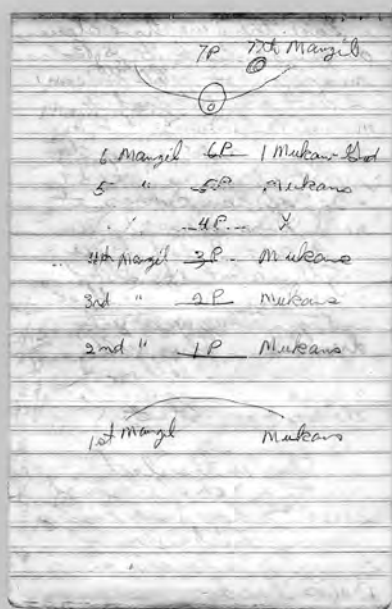 7P 7th Mangil
0
6 Mangil 6P 1 Mukam God
5 " 5P Mukans
4P
4th Mangil 3P Mukans
3rd " 2P Mukans
2nd " 1P Mukans
1st Mangil Mukans